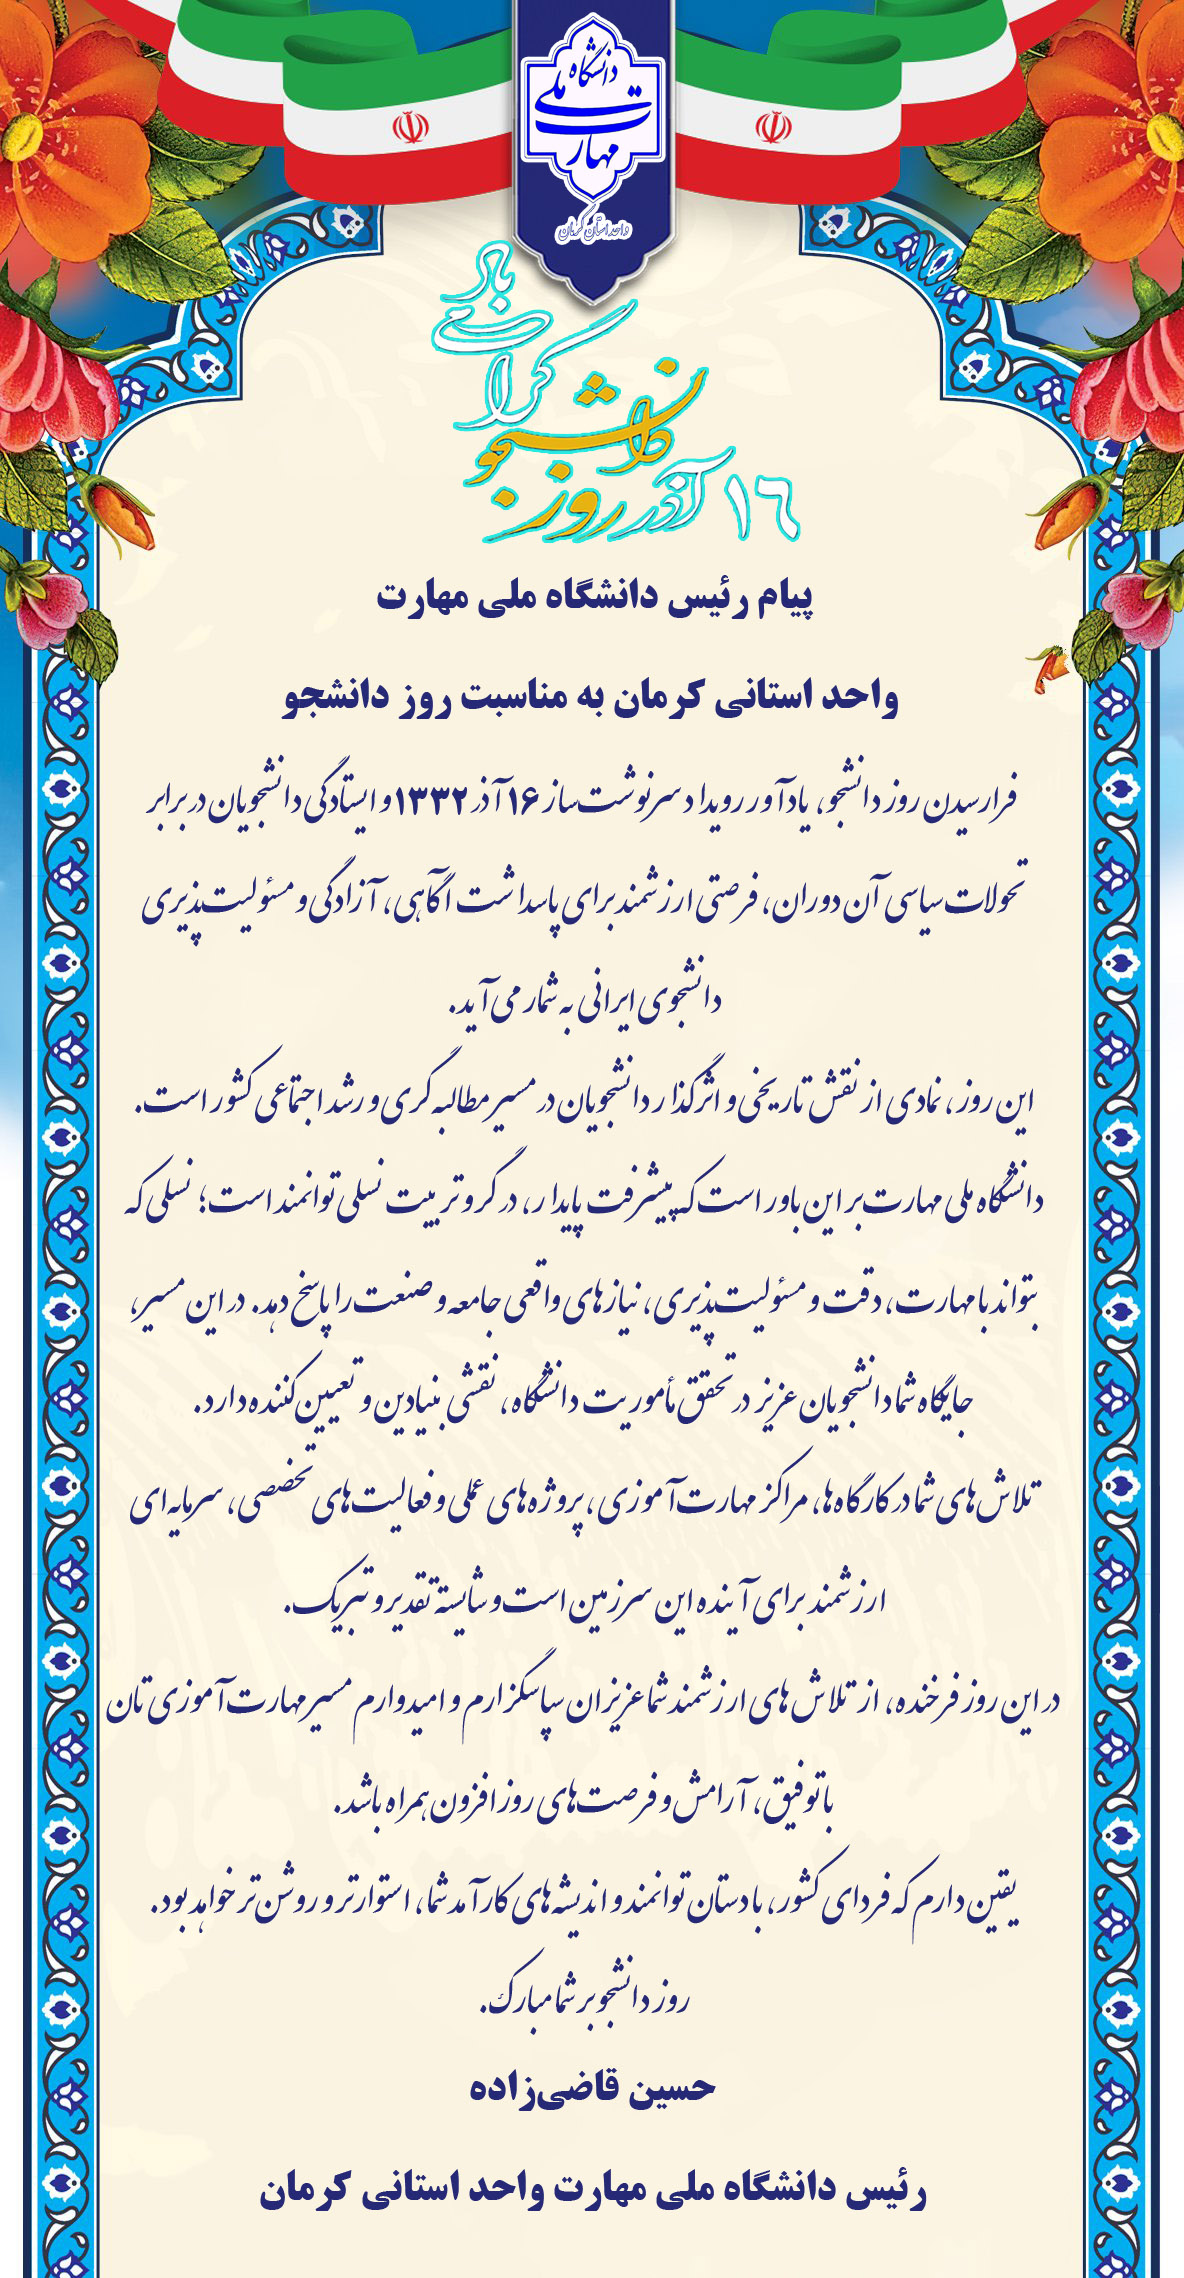 دانشگاه
ملی
مهارت
واحد استان کرمان
۱۶ آذر روز
دانشجو
گرامی
باد
پیام رئیس دانشگاه ملی مهارت
واحد استانی کرمان به مناسبت روز دانشجو
فرارسیدن روز دانشجو، یادآور رویداد سرنوشت‌ساز ۱۶ آذر ۱۳۳۲ و ایستادگی دانشجویان در برابر
تحولات سیاسی آن دوران، فرصتی ارزشمند برای پاسداشت آگاهی، آزادگی و مسئولیت‌پذیری
دانشجوی ایرانی به شمار می‌آید.
این روز، نمادی از نقش تاریخی و اثرگذار دانشجویان در مسیر مطالبه‌گری و رشد اجتماعی کشور است.
دانشگاه ملی مهارت بر این باور است که پیشرفت پایدار، در گرو تربیت نسلی توانمند است؛ نسلی که
بتواند با مهارت، دقت و مسئولیت‌پذیری، نیازهای واقعی جامعه و صنعت را پاسخ دهد. در این مسیر،
جایگاه شما دانشجویان عزیز در تحقق مأموریت دانشگاه، نقشی بنیادین و تعیین‌کننده دارد.
تلاش‌های شما در کارگاه‌ها، مراکز مهارت‌آموزی، پروژه‌های عملی و فعالیت‌های تخصصی، سرمایه‌ای
ارزشمند برای آینده این سرزمین است و شایسته تقدیر و تبریک.
در این روز فرخنده، از تلاش‌های ارزشمند شما عزیزان سپاسگزارم و امیدوارم مسیر مهارت‌آموزی‌تان
با توفیق، آرامش و فرصت‌های روزافزون همراه باشد.
یقین دارم که فردای کشور، با دستان توانمند و اندیشه‌های کارآمد شما، استوارتر و روشن‌تر خواهد بود.
روز دانشجو بر شما مبارک.
حسین قاضی‌زاده
رئیس دانشگاه ملی مهارت واحد استانی کرمان